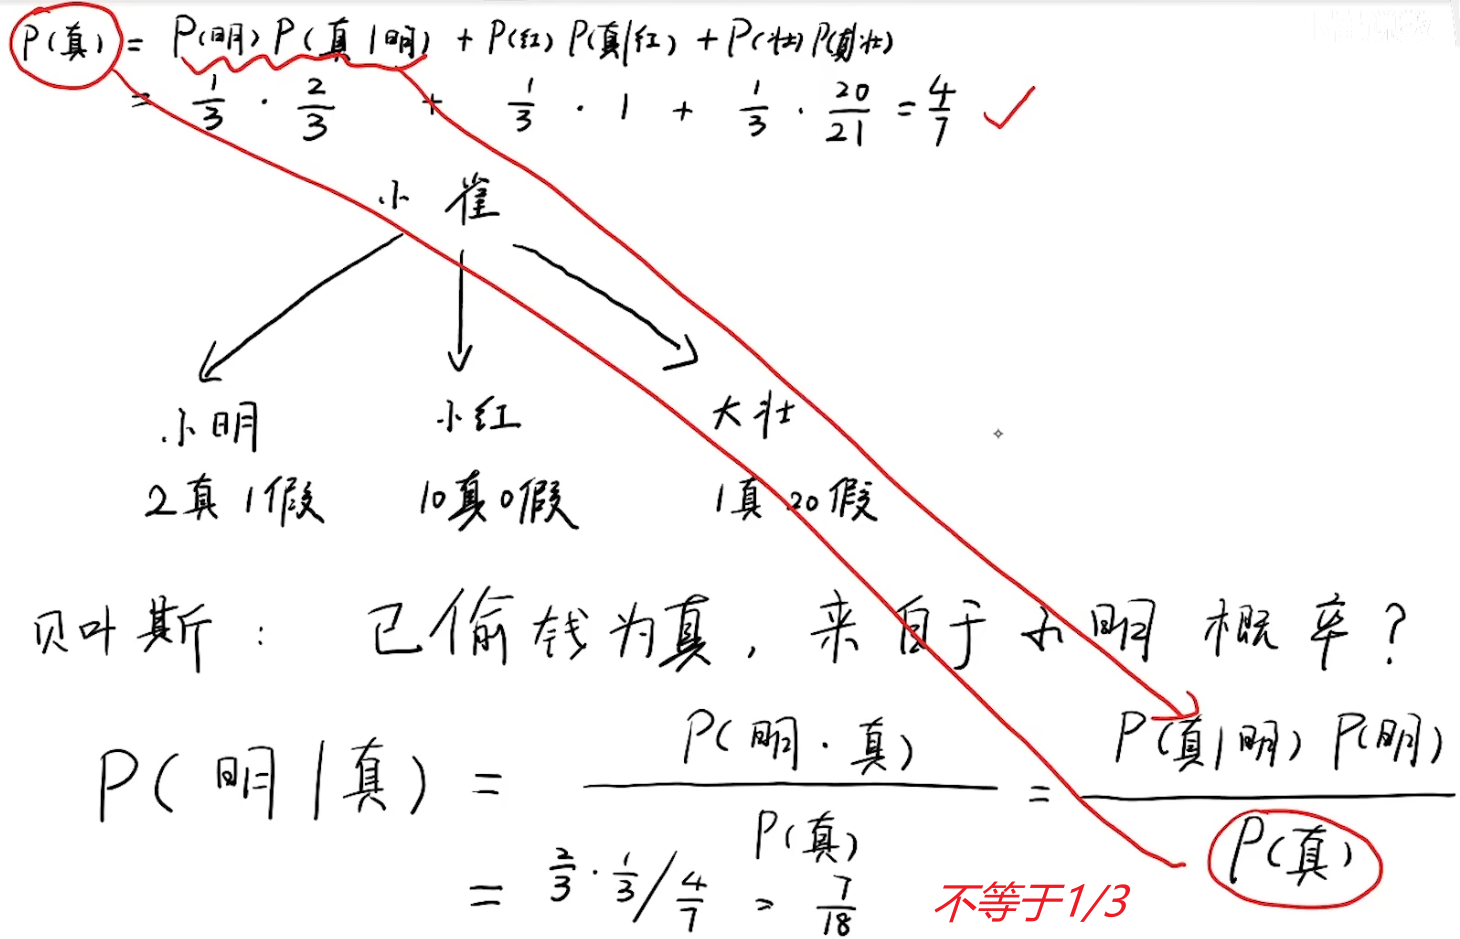 P(真) = P(明) P(真|明) + P(红) P(真|红) + P(壮) P(真|壮)
= 1/3 · 2/3 + 1/3 · 1 + 1/3 · 20/21 = 4/7 ✓
小雀
小明 小红 大壮
2真 1假 10真 0假 1真 20假
贝叶斯: 已偷钱为真, 来自于小明概率?
P(明|真) = P(明·真)/P(真) = P(真|明) P(明)/P(真)
= 2/3 · 1/3 / 4/7 = 7/18 不等于1/3